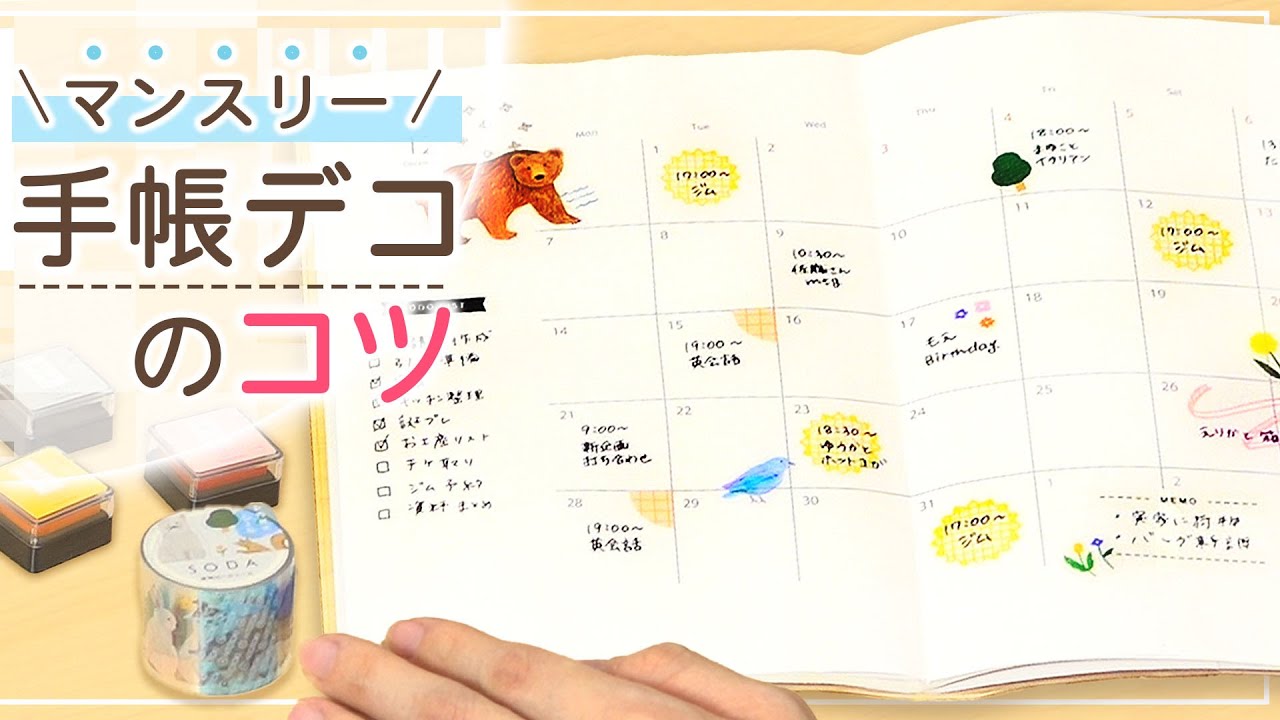 \ マンスリー /
手帳デコ
のコツ
12
Mon
Tue
Wed
Thu
Fri
Sat
1
17:00〜
ジム
2
3
4
18:00〜
イタリアン
5
6
7
8
9
10:30〜
佐藤さん
mtg
10
11
12
17:00〜
ジム
14
15
19:00〜
英会話
16
17
もえ
Birthday.
18
19
21
9:00〜
新企画
打ち合わせ
22
23
18:30〜
ゆうかと
ホットヨガ
24
25
26
28
19:00〜
英会話
29
30
31
17:00〜
ジム
1
2
MEMO
・実家に荷物
キッチン整理
誕プレ
お土産リスト
チケ取り
ジム予約
資料まとめ
SODA